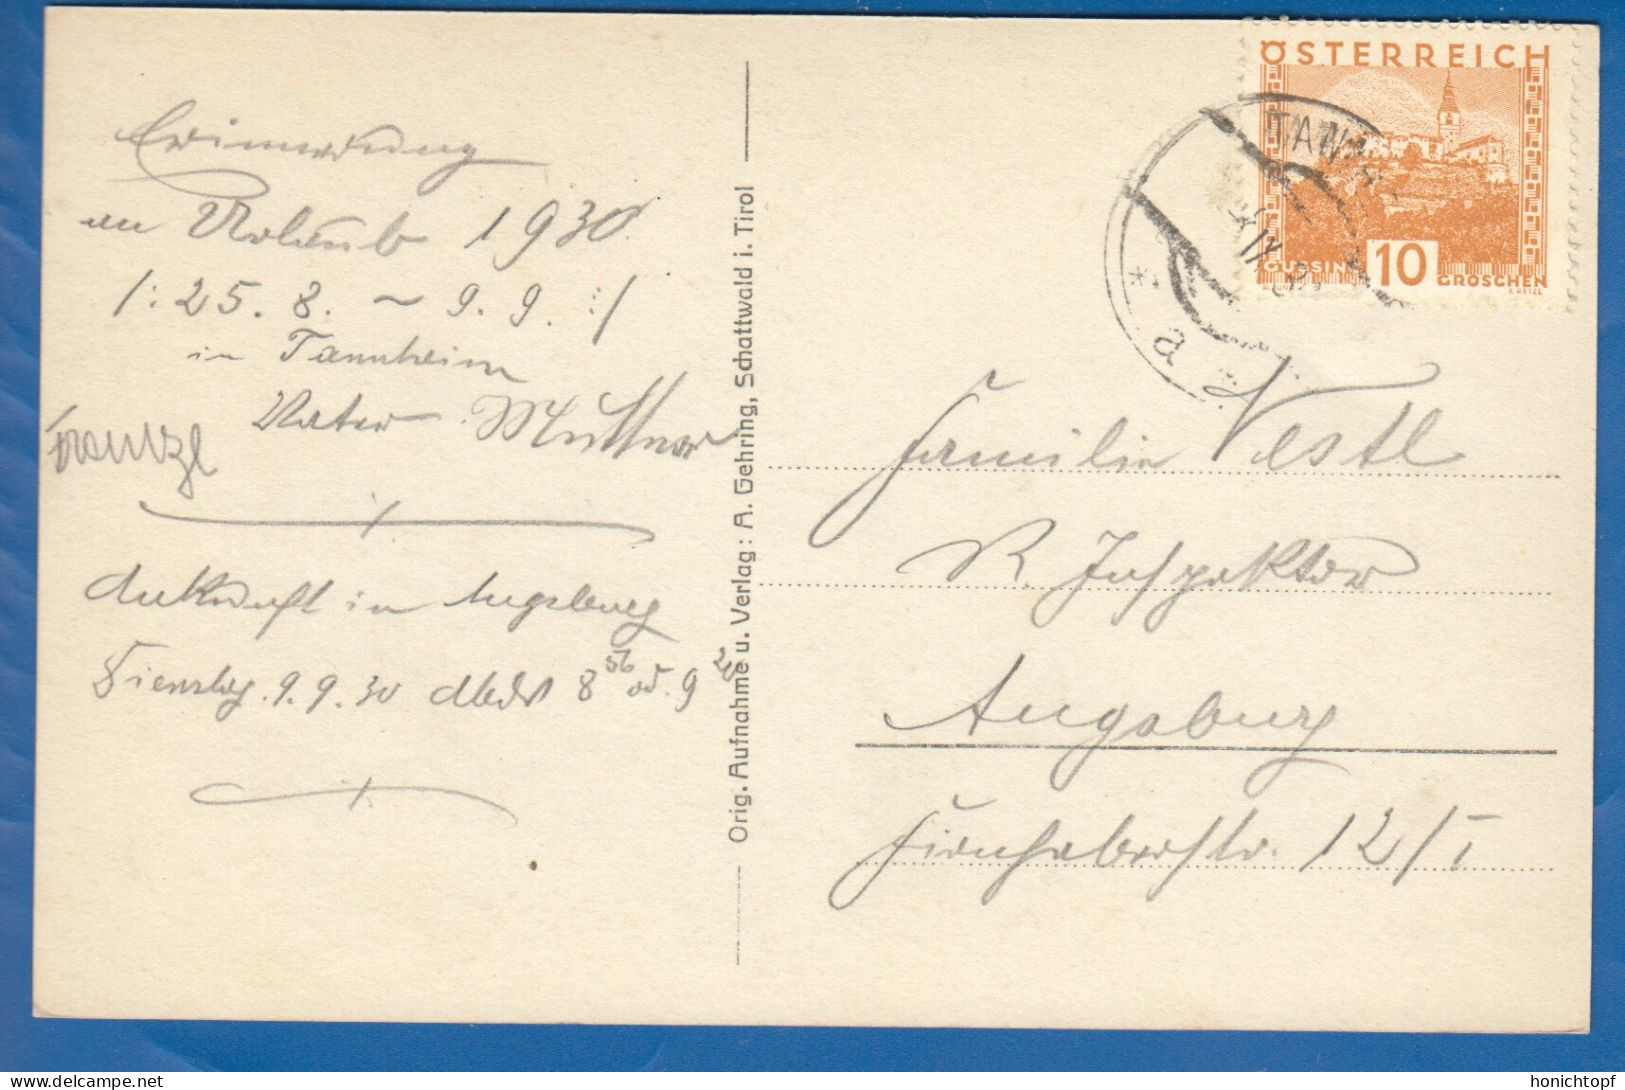 Erinnerung
an Urlaub 1930.
/: 25. 8. ~ 9. 9. :/
in Tannheim
Vater Mutter
Franzl
Ankunft in Augsburg
Dienstag. 9. 9. 30 8 56 od. 9 20
Orig. Aufnahme u. Verlag: A. Gehring, Schattwald i. Tirol
ÖSTERREICH
GÜSSING 10 GROSCHEN
TANNH
* a *
Familie Nestl
R. Inspektor
Augsburg
12/I
honichtopf
delcampe.net